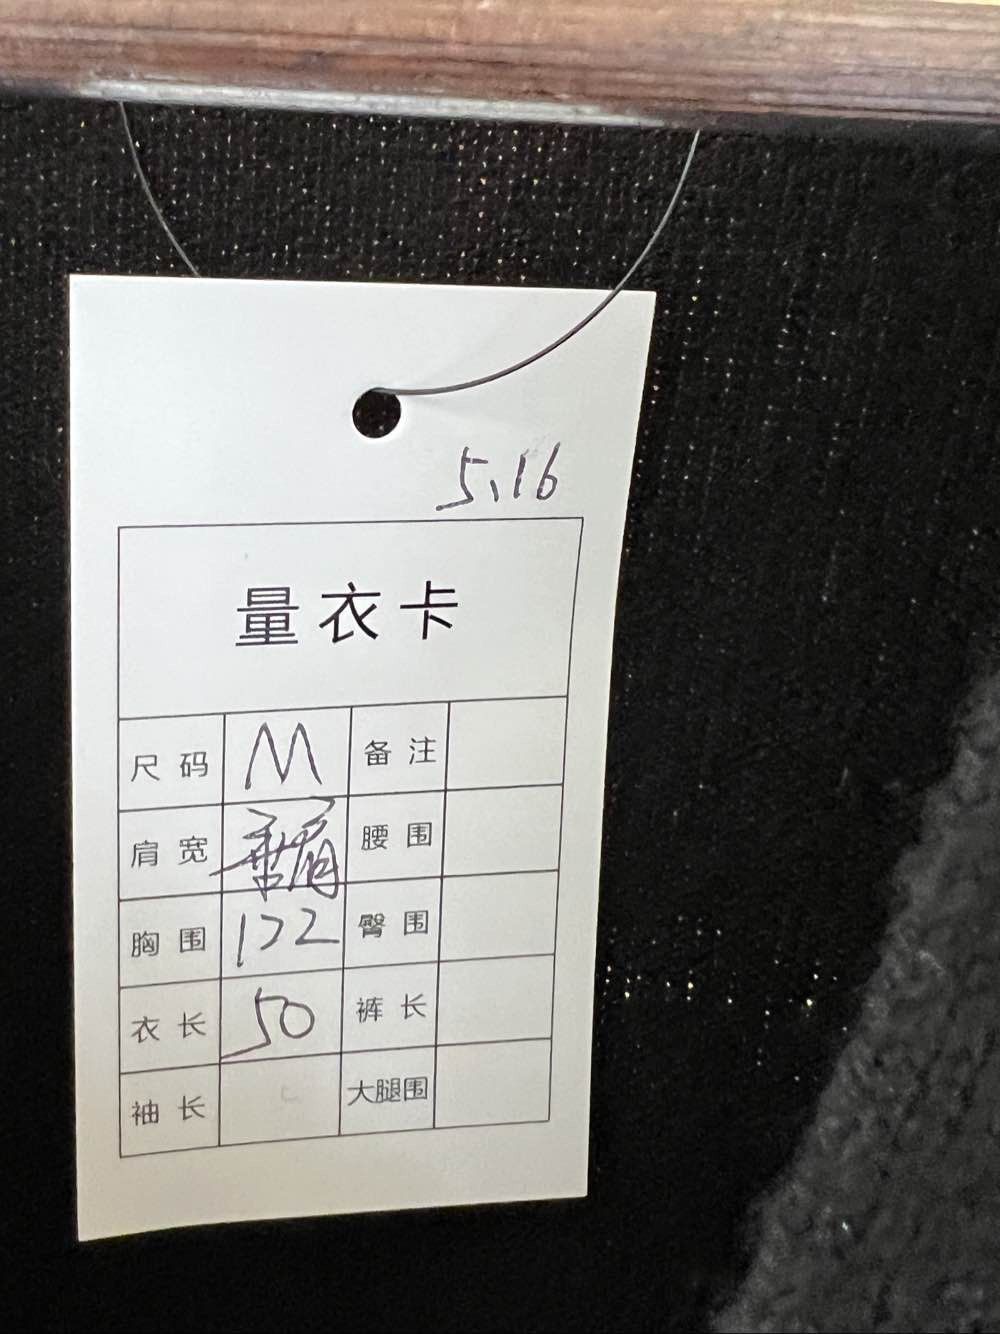 5.16
量衣卡
尺码 M 备注
肩宽 腰围
胸围 122 臀围
衣长 50 裤长
袖长 大腿围